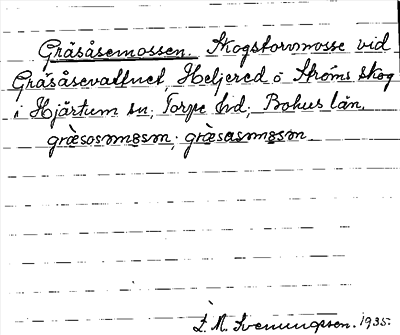 Gräsåsemossen. Skogstorvmosse vid
Gräsåsevattnet, Heljered o Ströms skog
i Hjärtum sn, Torpe hd, Bohus län.
græsosmɵsɷn; græsasmɵsɷn
L. M. Svenungsson. 1935.